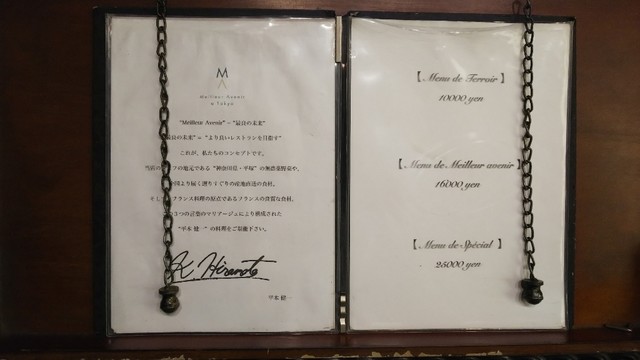 M
Meilleur Avenir
a Tokyo
"Meilleur Avenir" = "最良の未来"
良の未来" = "より良いレストランを目指す"
これが、私たちのコンセプトです。
フの地元である "神奈川県・平塚" の無農薬野菜や、
国より届く選りすぐりの産地直送の食材。
そし フランス料理の原点であるフランスの良質な食材。
3つの言葉のマリアージュにより構成された
"平本 健一" の料理をご堪能下さい。
K. Hiramoto
平本 健一
【 Menu de Terroir 】
10000 yen
【 Menu de Meilleur avenir 】
16000 yen
【 Menu de Spécial 】
25000 yen